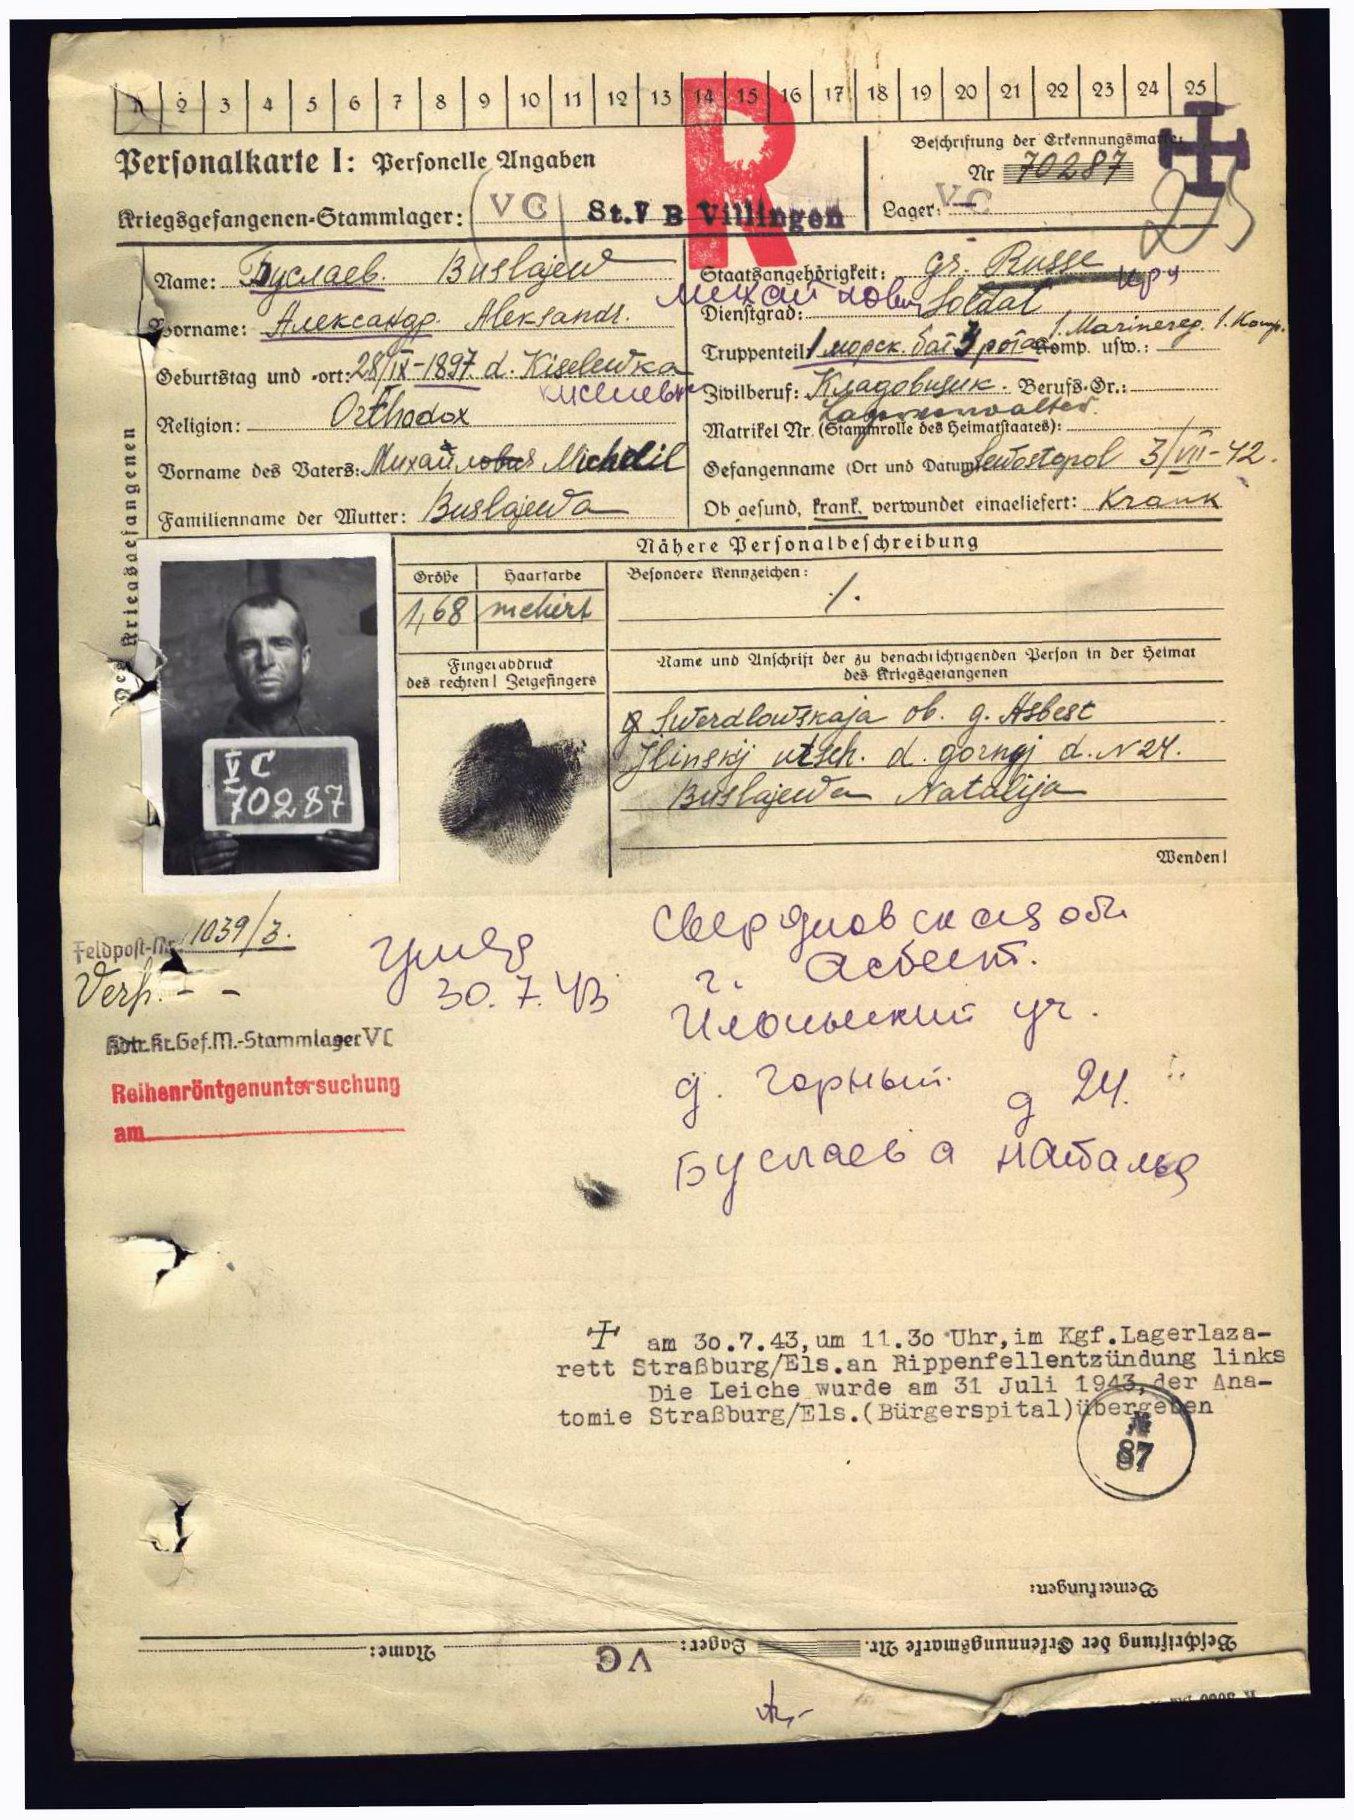 1 2 3 4 5 6 7 8 9 10 11 12 13 14 15 16 17 18 19 20 21 22 23 24 25
R
Personalkarte I: Personelle Angaben
Beschriftung der Erkennungsmarke:
Nr 70287
Kriegsgefangenen-Stammlager: VC St. V B Villingen
Lager: VC
25
Name: Буслаев. Buslajew
Staatsangehörigkeit: gr. Russe
Михайлович
Vorname: Александр. Aleksandr.
Dienstgrad: Soldat
1. Marinereg. 1. Komp.
Truppenteil: 1 морск. бат 3 рота Komp. usw.:
Geburtstag und -ort: 28/IX-1897 d. Kiselewka
Zivilberuf: Кладовщик. Berufs-Gr.:
Lagerverwalter.
Religion: Orthodox
Matrikel Nr. (Stammrolle des Heimatstaates):
Vorname des Vaters: Михайлович Michail
Gefangenname (Ort und Datum): Sewostopol 3/VII-42.
Familienname der Mutter: Buslajewa
Ob gesund, krank, verwundet eingeliefert: Krank
Des Kriegsgefangenen
Nähere Personalbeschreibung
Größe Haarfarbe Besondere Kennzeichen:
1,68 meliert ./.
Fingerabdruck
des rechten! Zeigefingers
Name und Anschrift der zu benachrichtigenden Person in der Heimat
des Kriegsgefangenen
Swerdlowskaja ob. g. Asbest
Jlinskj utsch. d. gornyj d. N 24.
Buslajewa Natalija
V C
70287
Wenden!
Feldpost-Nr. 1039/3.
Verp. - -
умер
30.7.43
Свердловская обл
г. Асбест.
Ильинский уч.
д. горный. д 24.
Буслаева Наталья
Kdtr. Kr. Gef. M.-Stammlager VC
Reihenröntgenuntersuchung
am
am 30.7.43, um 11.30 Uhr, im Kgf. Lagerlaza-
rett Straßburg/Els. an Rippenfellentzündung links
Die Leiche wurde am 31 Juli 1943, der Ana-
tomie Straßburg/Els. (Bürgerspital) übergeben
№
87
Bemerkungen:
Beschriftung der Erkennungsmarke Nr. Lager: VC Name: